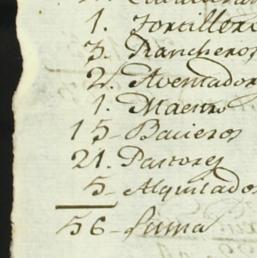 1. Tortillero
3. Rancheros
2. Aventador
1. Maestro
15- Bacieros
21. Pastores
5- Alquilados
56- Suma